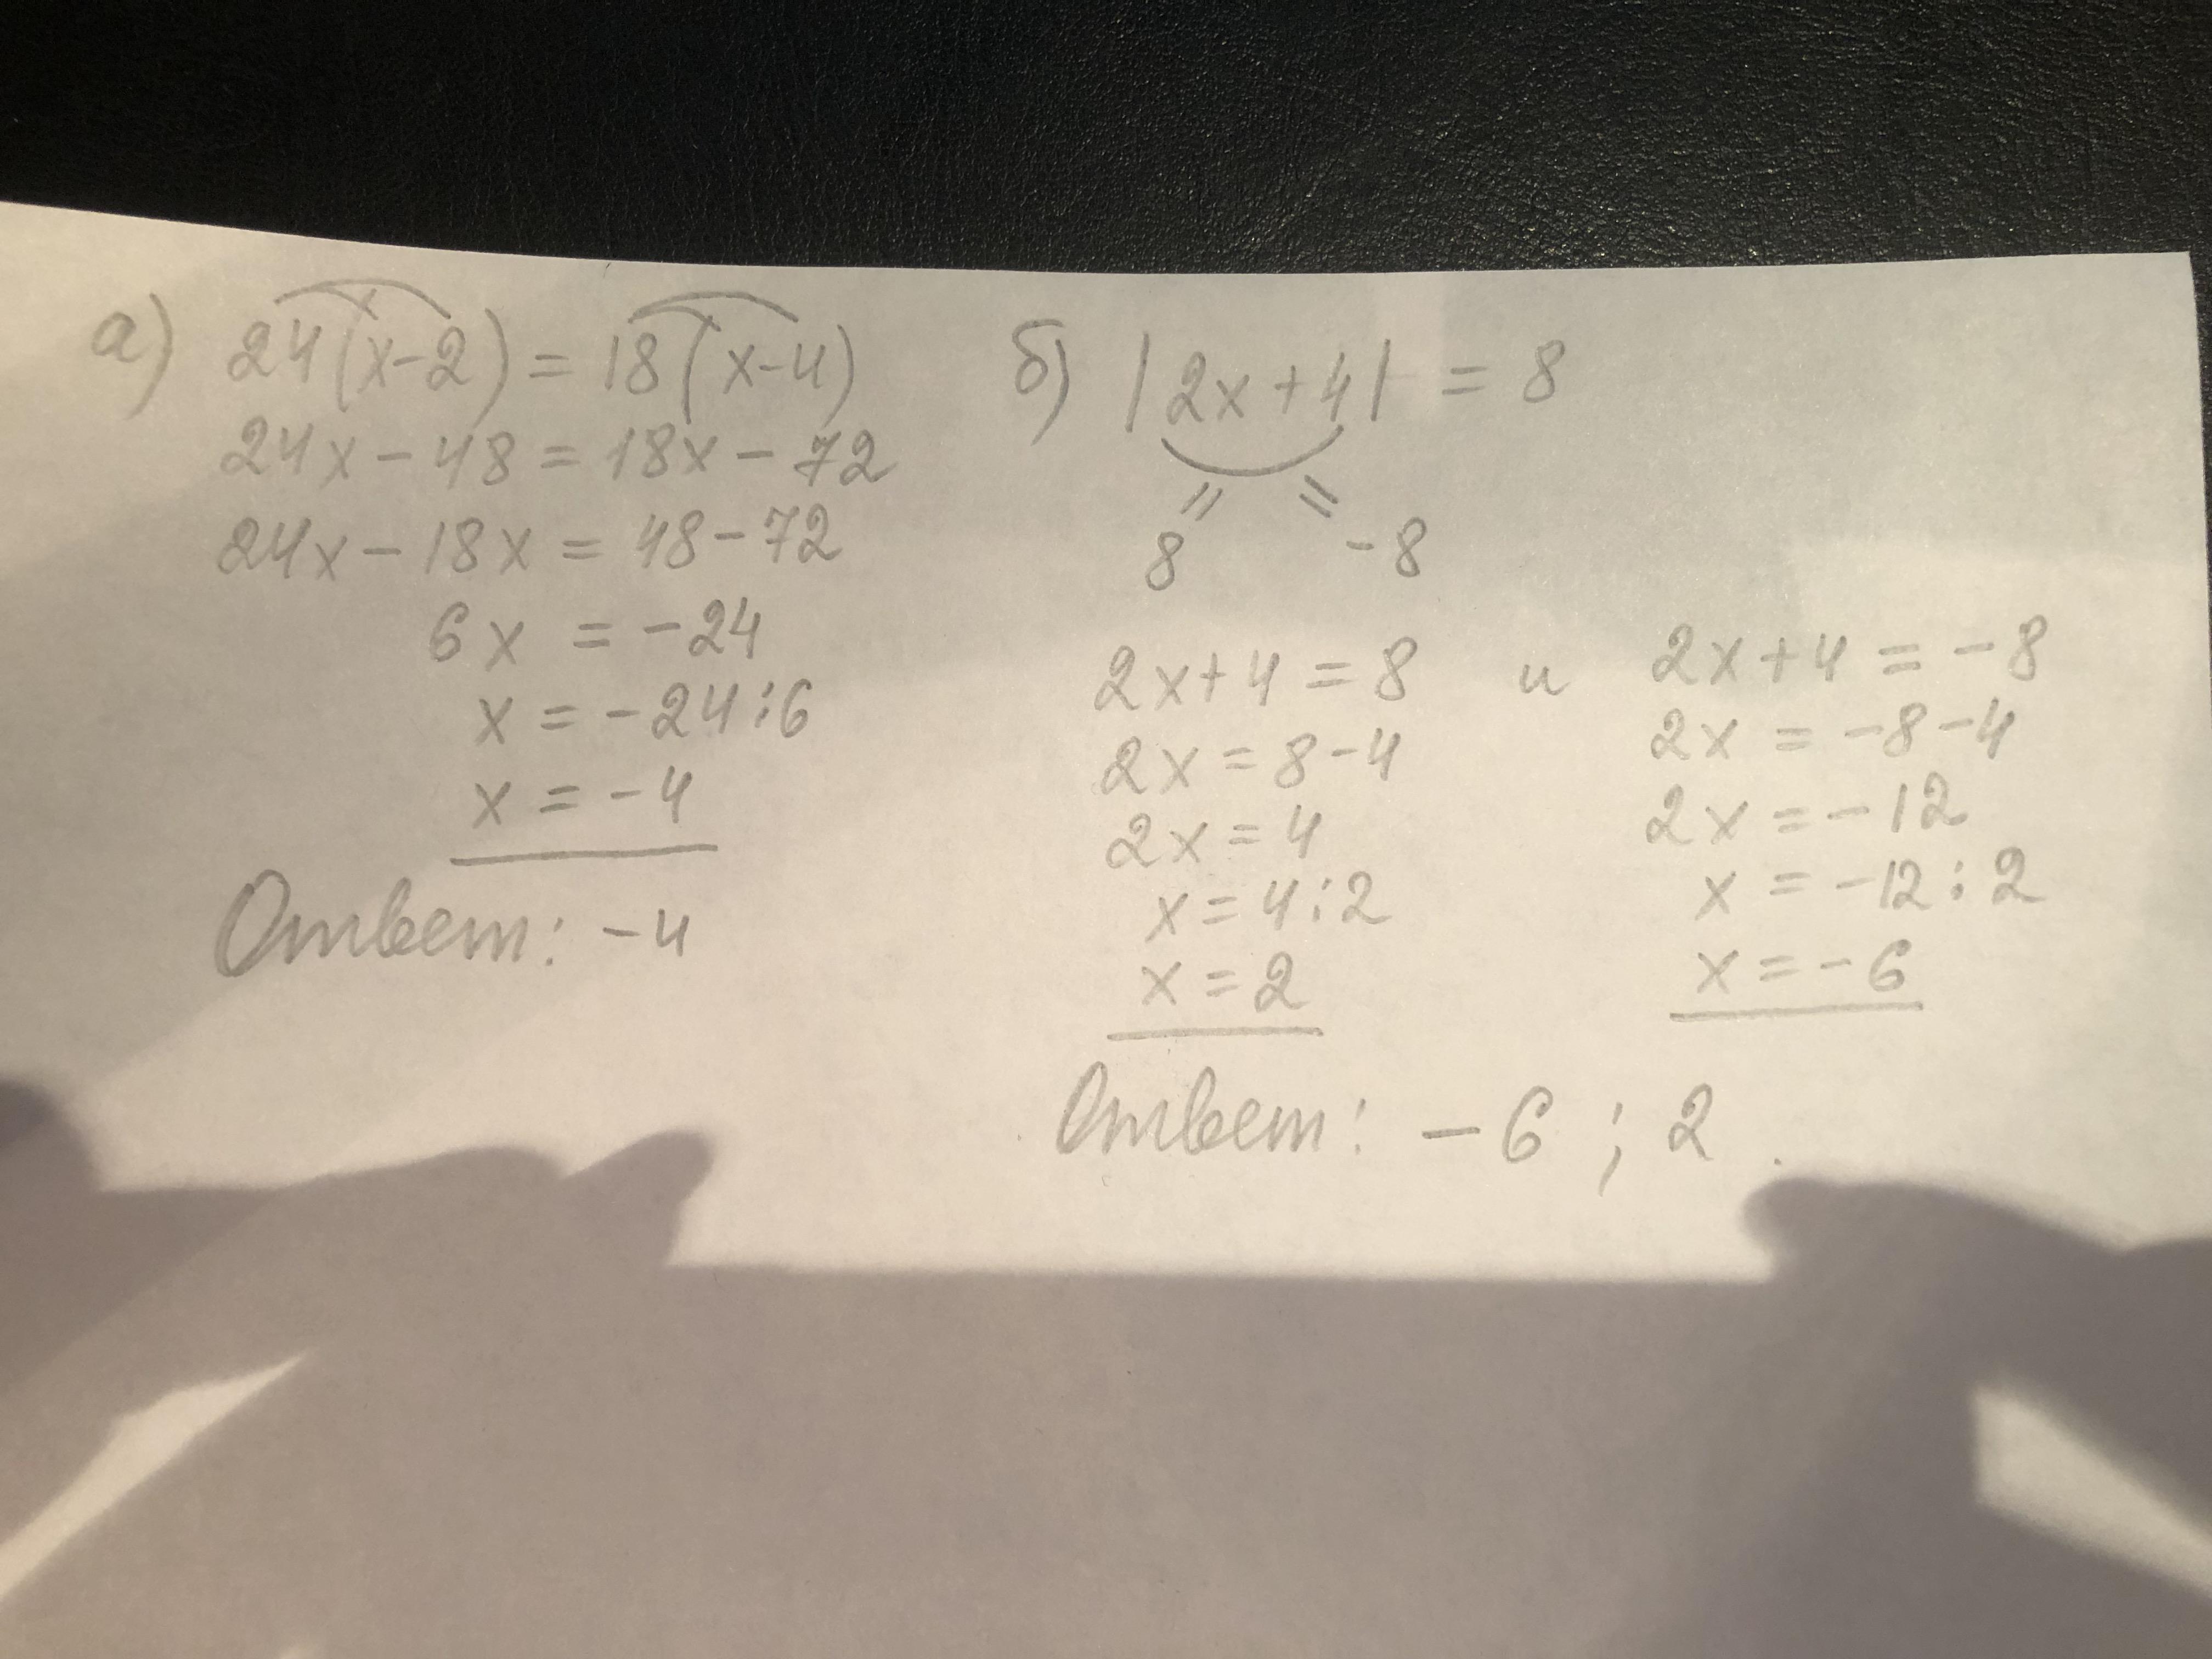 а) 24(x-2) = 18(x-4)
24x - 48 = 18x - 72
24x - 18x = 48 - 72
6x = -24
x = -24:6
x = -4
Ответ: -4
б) |2x+4| = 8
= =
8 -8
2x+4 = 8 и 2x+4 = -8
2x = 8-4 2x = -8-4
2x = 4 2x = -12
x = 4:2 x = -12:2
x = 2 x = -6
Ответ: -6 ; 2.